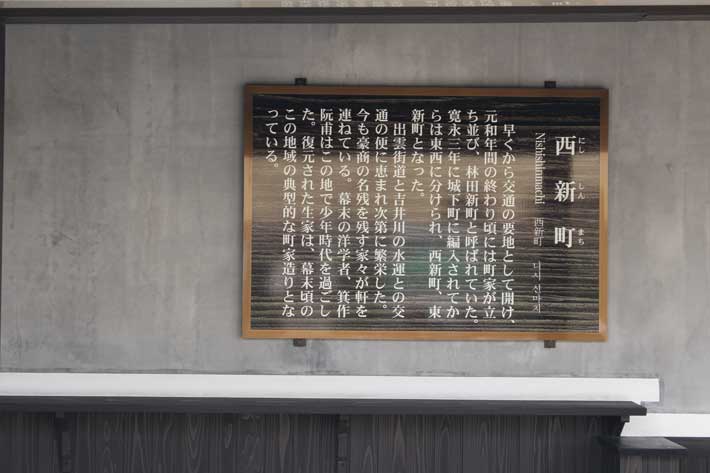 西新町
にし しん まち
Nishishinmachi 西新町 니시 신마치
早くから交通の要地として開け、
元和年間の終わり頃には町家が立
ち並び、林田新町と呼ばれていた。
寛永三年に城下町に編入されてか
らは東西に分けられ、西新町、東
新町となった。
出雲街道と吉井川の水運との交
通の便に恵まれ次第に繁栄した。
今も豪商の名残を残す家々が軒を
連ねている。幕末の洋学者、箕作
阮甫はこの地で少年時代を過ごし
た。復元された生家は、幕末頃の
この地域の典型的な町家造りとな
っている。